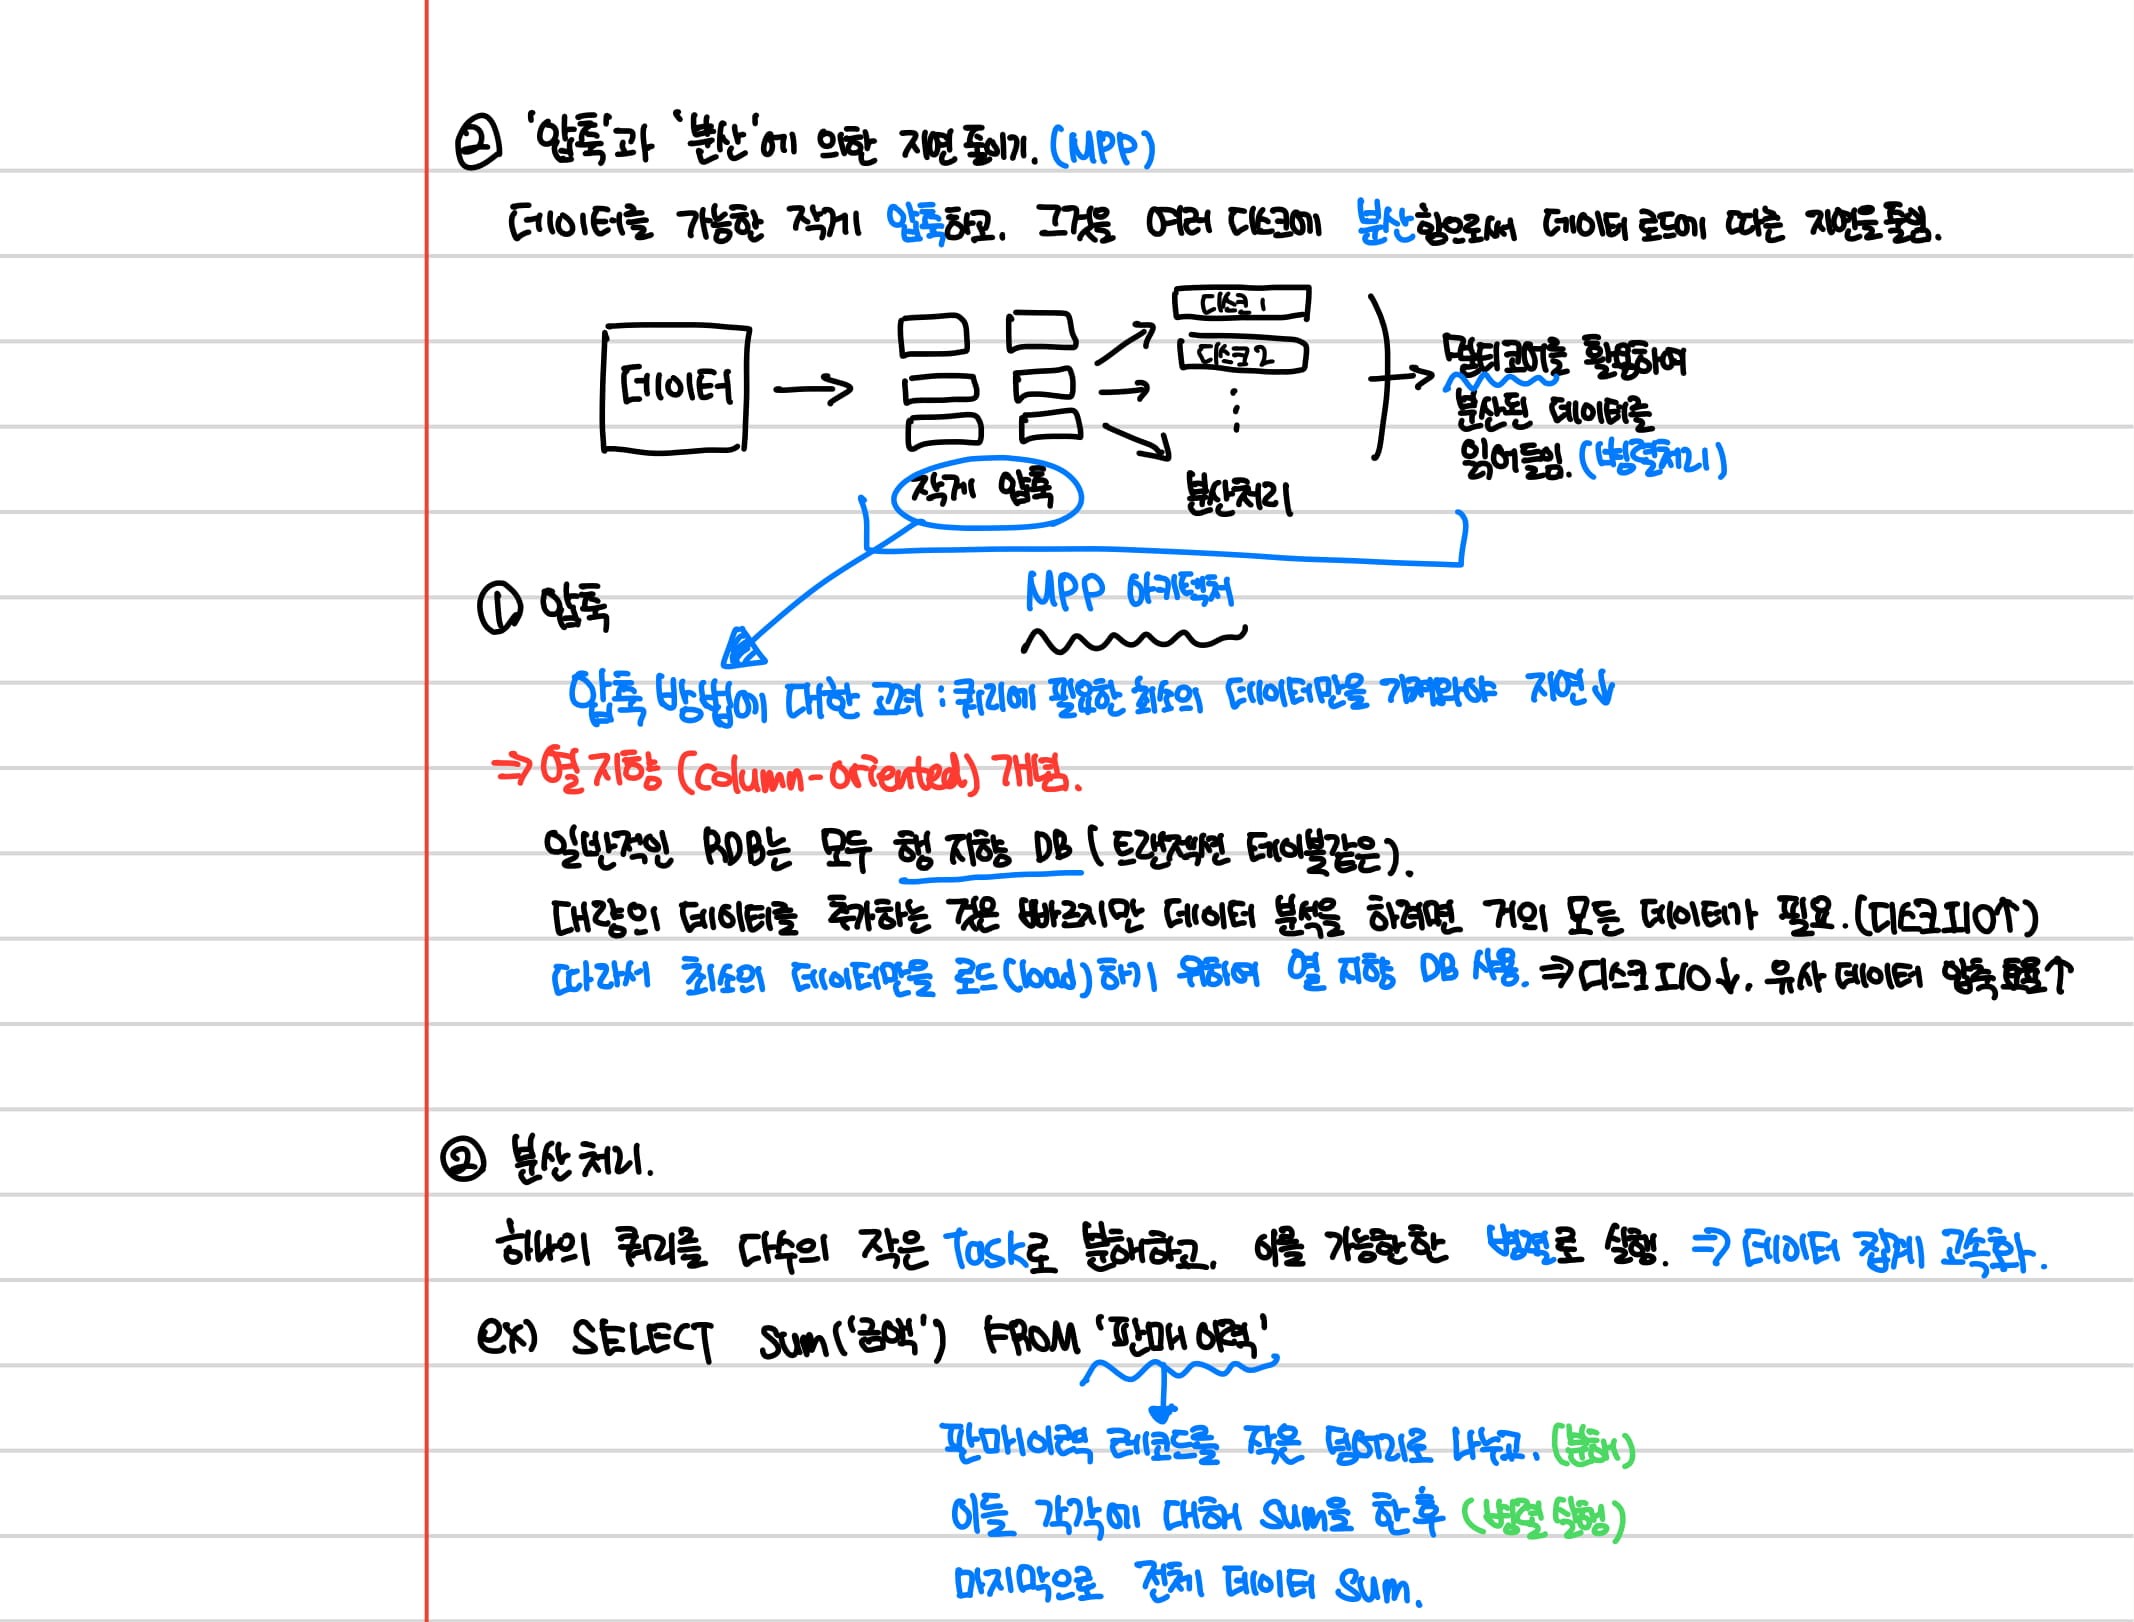 ② '압축'과 '분산'에 의한 지연 줄이기. (MPP)
데이터를 가능한 작게 압축하고. 그것을 여러 디스크에 분산함으로써 데이터 로드에 따른 지연을 줄임.
데이터
디스크 1
디스크 2
멀티코어를 활용하여
분산된 데이터를
읽어들임. (병렬처리)
작게 압축
분산처리
MPP 아키텍처
① 압축
압축 방법에 대한 고려 : 쿼리에 필요한 최소의 데이터만을 가져와야 지연↓
⇒ 열 지향 (column-oriented) 개념.
일반적인 RDB는 모두 행 지향 DB (트랜잭션 테이블같은).
대량의 데이터를 추가하는 것은 빠르지만 데이터 분석을 하려면 거의 모든 데이터가 필요. (디스크 IO↑)
따라서 최소의 데이터만을 로드(load)하기 위하여 열 지향 DB 사용. ⇒ 디스크 IO↓. 유사 데이터 압축 효율↑
② 분산 처리.
하나의 쿼리를 다수의 작은 Task로 분해하고. 이를 가능한한 병렬로 실행. ⇒ 데이터 집계 고속화.
ex) SELECT sum('금액') FROM '판매 이력'
판매이력 레코드를 작은 덩어리로 나누고. (분해)
이들 각각에 대해 sum을 한 후 (병렬 실행)
마지막으로 전체 데이터 sum.